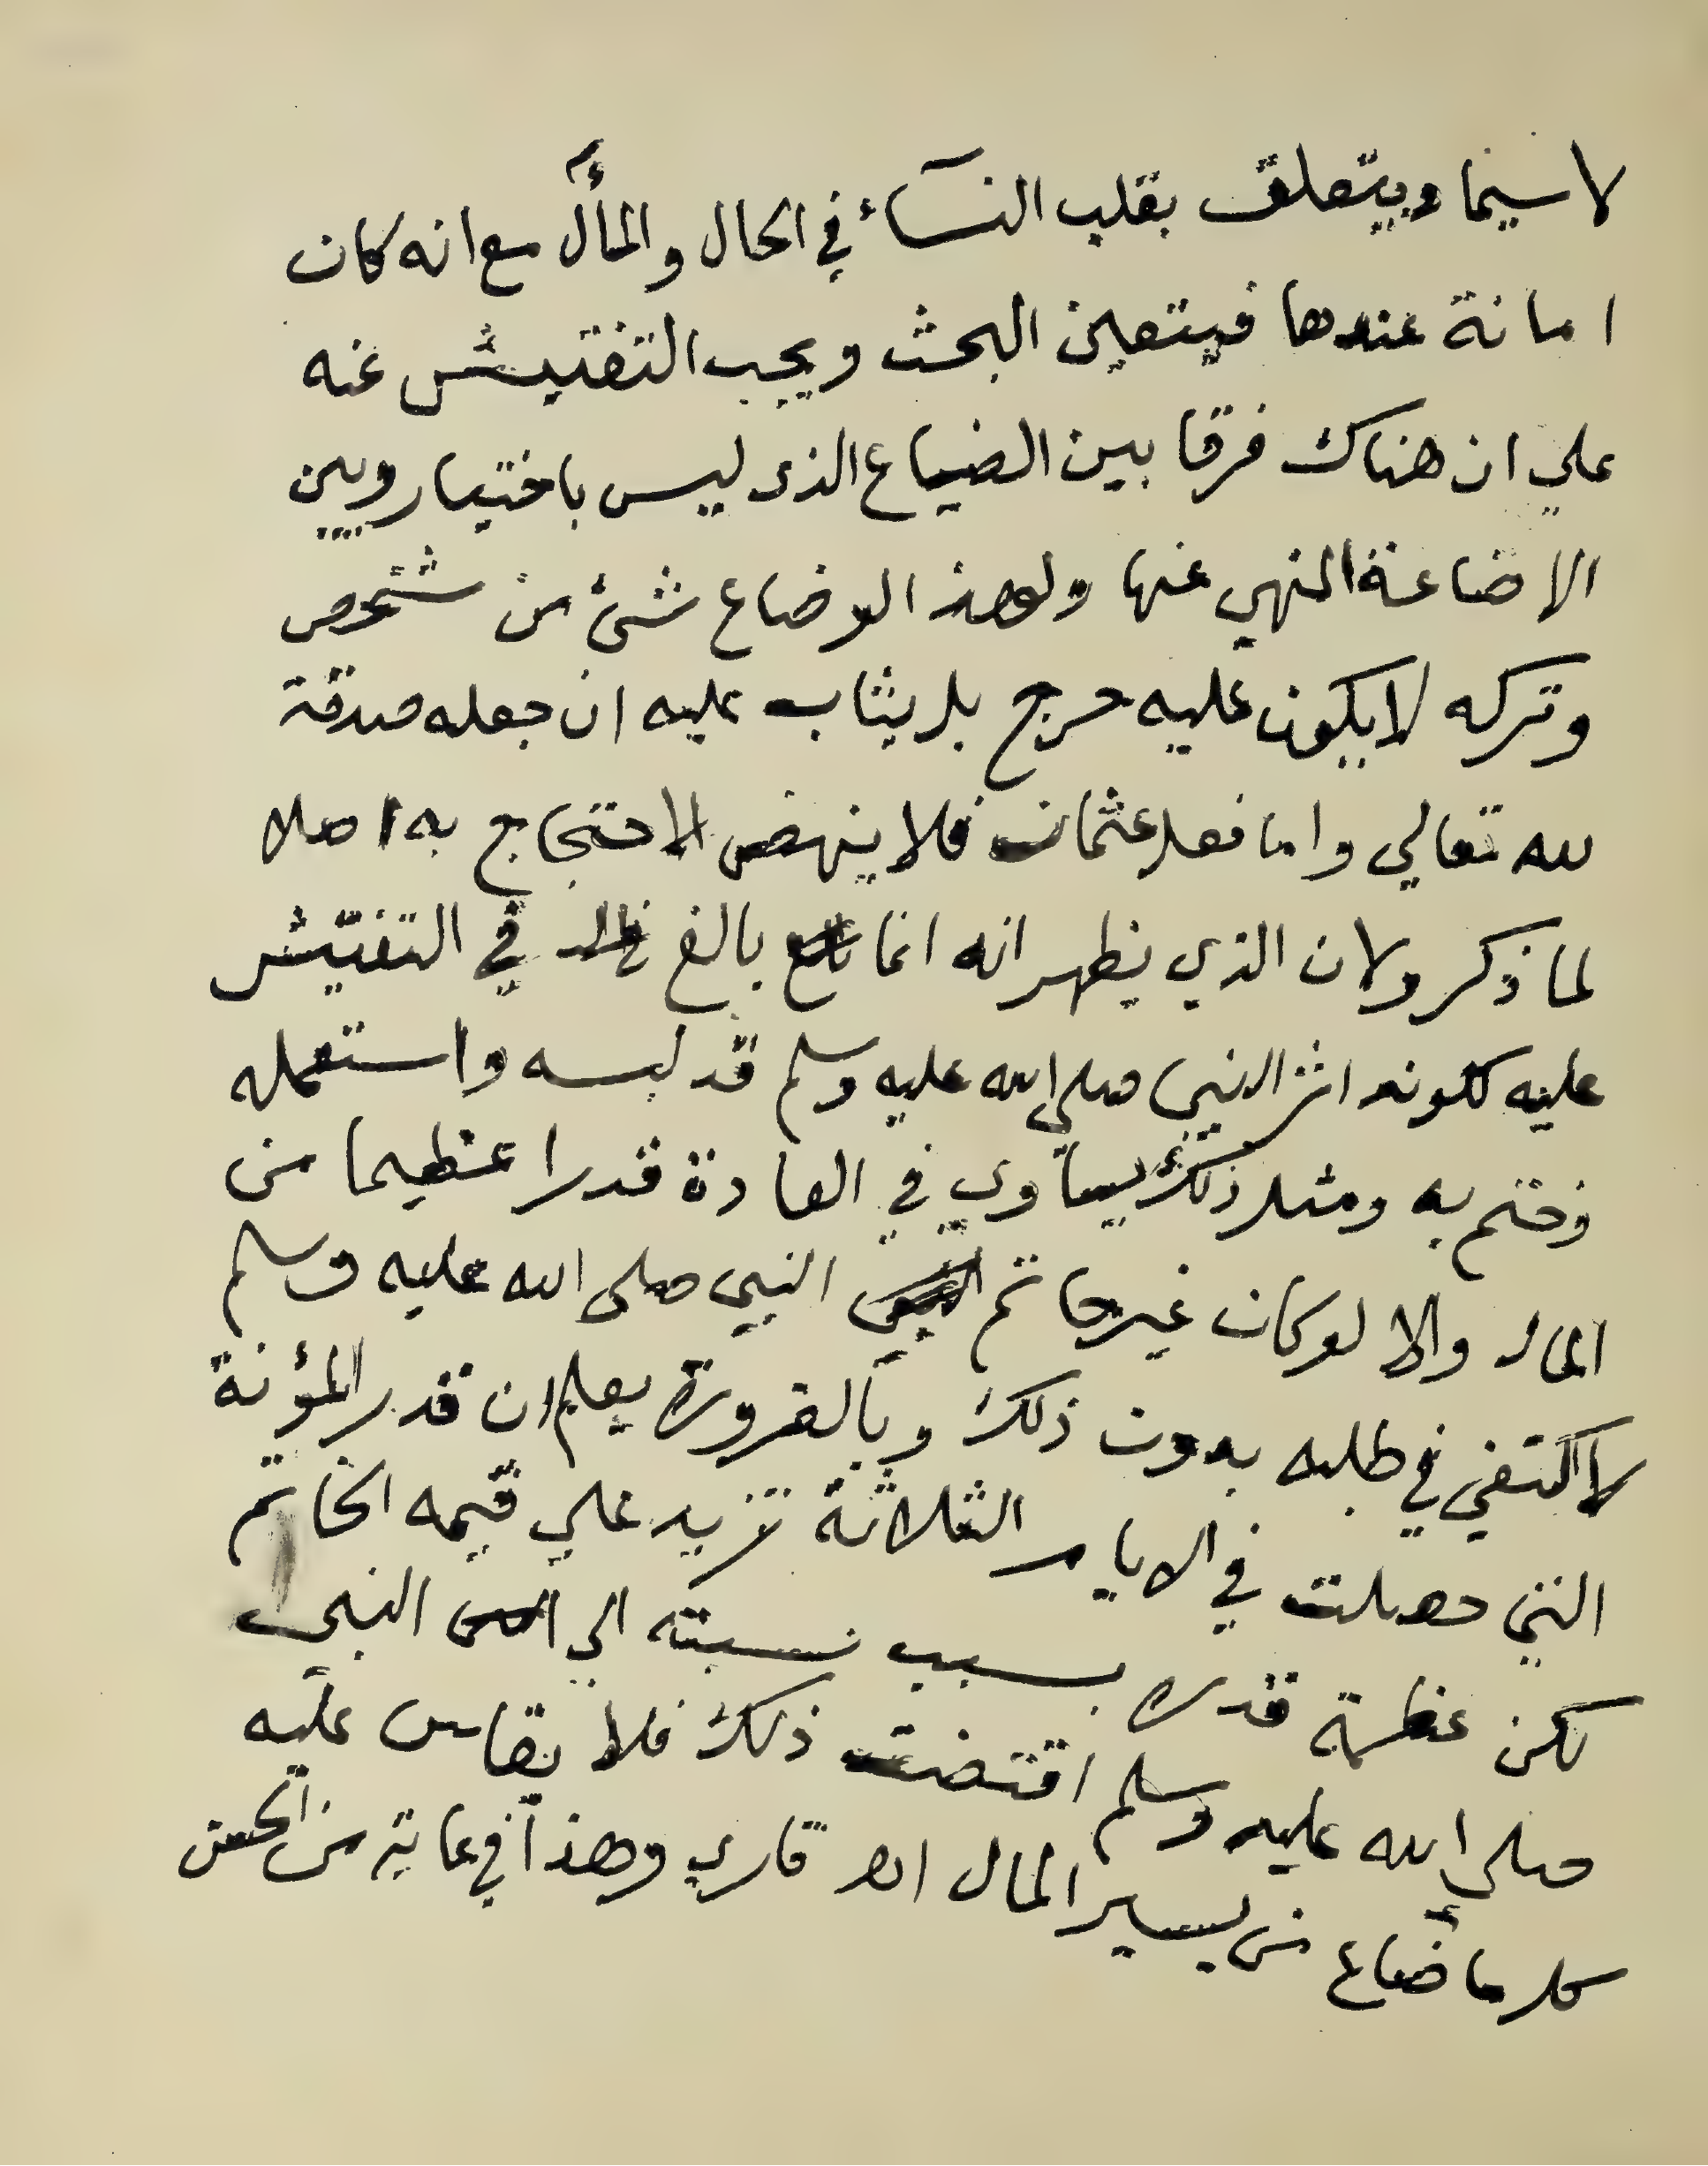 لا سيما ويتعلق بقلب النسآء في الحال والمأل مع انه كان
امانة عندها فيتعين البحث ويجب التفتيش عنه
علي ان هناك فرقا بين الضياع الذى ليس باختيار وبين
الاضاعة المنهي عنها ولهذا لو ضاع شئ من شخص
وتركه لا يكون عليه حرج بل يثاب عليه ان جعله صدقة
لله تعالي واما فعل عثمان فلا ينهض الاحتجاج به اصلا
لما ذكر ولان الذي يظهر انه انما بالغ في التفتيش
عليه لكونه اثر النبي صلى الله عليه وسلم قد لبسه واستعمله
وختم به ومثل ذلك يساوي في العادة قدرا عظيما من
المال والا لو كان غير خاتم النبي صلى الله عليه وسلم
لاكتفي في طلبه بدون ذلك وبالضرورة يعلم ان قدر المؤنة
التي حصلت في الايام الثلاثة تزيد علي قيمه الخاتم
لكن عظمة قدره بسبب نسبته الي النبي
صلى الله عليه وسلم اقتضت ذلك فلا يقاس عليه
كل ما ضاع من يسير المال اه قاري وهذا في غاية من الحسن